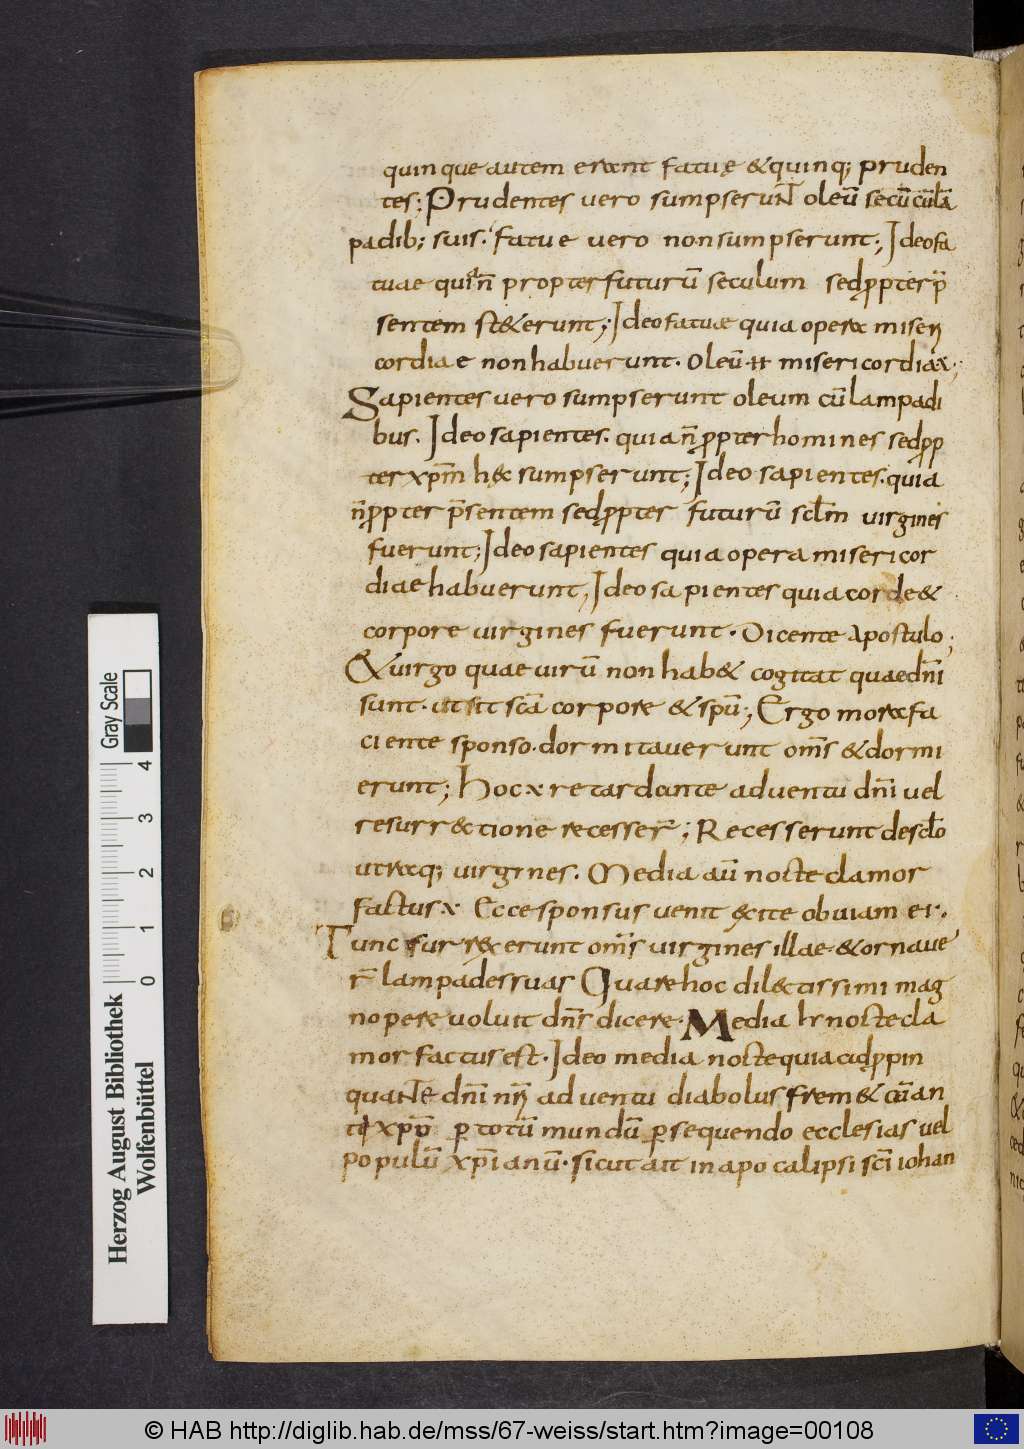 quinque autem erant fatuę &quinq; pruden
tes; Prudentes vero sumpserunt oleū secū cūla
padib; suis. fatue vero nonsumpserunt; Ideofa
tuae quia n̄ propter futurū seculum sed ꝓpter p̄
sentem st&erunt; Ideofatuae quia opera miseri
cordiae nonhabuerunt. Oleū misericordia;
Sapientes vero sumpserunt oleum cū lampadi
bus. Ideosapientes. quia n̄ ꝓpter homines sed ꝓp
ter xp̄m hęc sumpserunt; Ideo sapientes. quia
n̄ ꝓpter p̄sentem sed ꝓpter futurū sclm virgines
fuerunt; Ideo sapientes quia opera misericor
diae habuerunt, Ideo sapientes quia corde &
corpore virgines fuerunt. Dicente Apostulo;
Et virgo quae virū non hab& cogitat quae dn̄i
sunt. ut sit scā corpore & spū; Ergo morafa
ciente sponso. dormitauerunt om̄s & dormi
erunt; Hoc retardante adventu dn̄i vel
resurrectione recesser̄; Recesserunt de sclo
utraeq; virgines. Media aū nocte clamor
factus Ecce sponsus venit exite obuiam ei.
Tunc surrexerunt om̄s virgines illae & ornaue
r̄ lampades suas Quare hoc dilectissimi mag
nopere voluit dn̄s dicere. Media nocte cla
mor factus est. Ideo media nocte quia ad ꝓpin
quante dn̄i nr̄i adventu diabolus frem& cū an
te xpo ꝑ totū mundū ꝑsequendo ecclesias vel
populū xp̄ianū. sicut ait in apocalipsi sc̄i iohan
Gray Scale
0 1 2 3 4
Herzog August Bibliothek
Wolfenbüttel
© HAB http://diglib.hab.de/mss/67-weiss/start.htm?image=00108